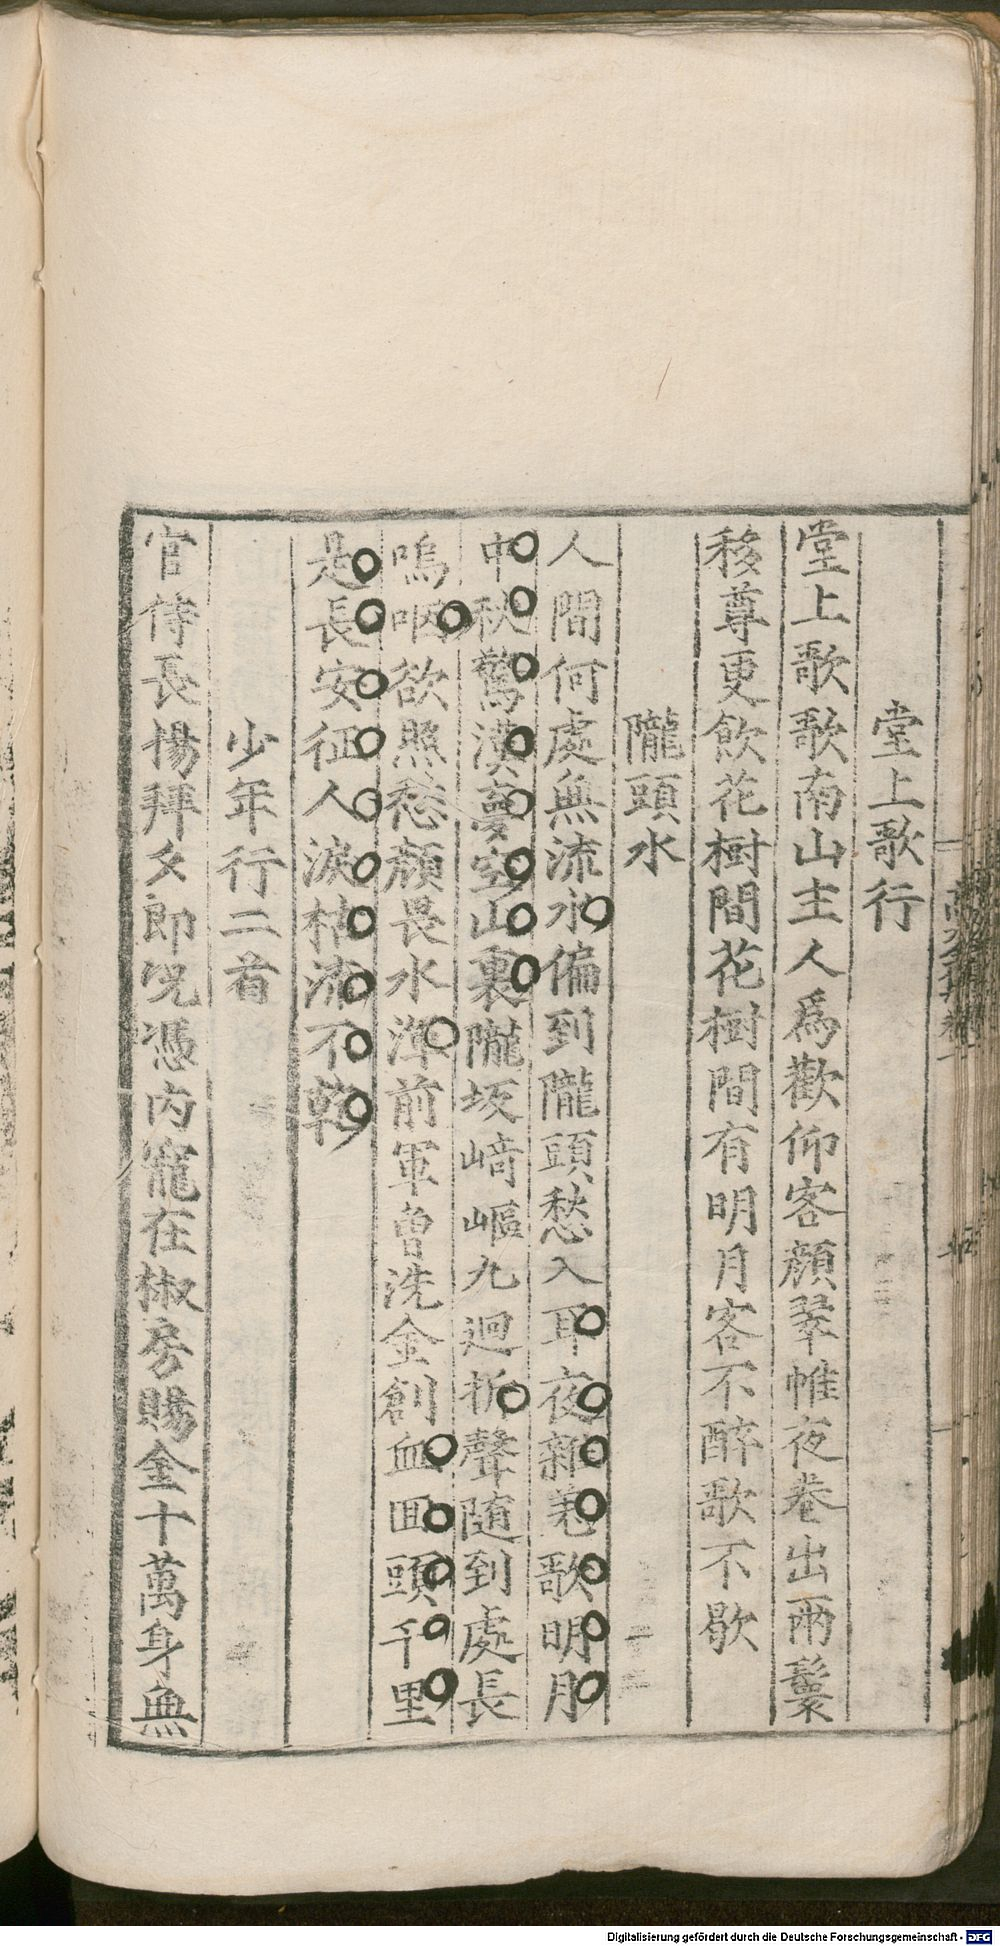 堂上歌行
堂上歌歌南山主人爲歡仰客顔翠帷夜卷出兩鬟
移尊更飮花樹間花樹間有明月客不醉歌不歇
隴頭水
人間何處無流水偏到隴頭愁入耳夜雜羗歌明月
中秋驚漢夢空山裏隴坂﨑嶇九迴折聲隨到處長
嗚咽欲照愁顔畏水渾前軍曾洗金創血囬頭千里
是長安征人淚枯流不乾
少年行二首
官侍長楊拜夕郎况憑内寵在椒房賜金十萬身無
Digitalisierung gefördert durch die Deutsche Forschungsgemeinschaft - DFG